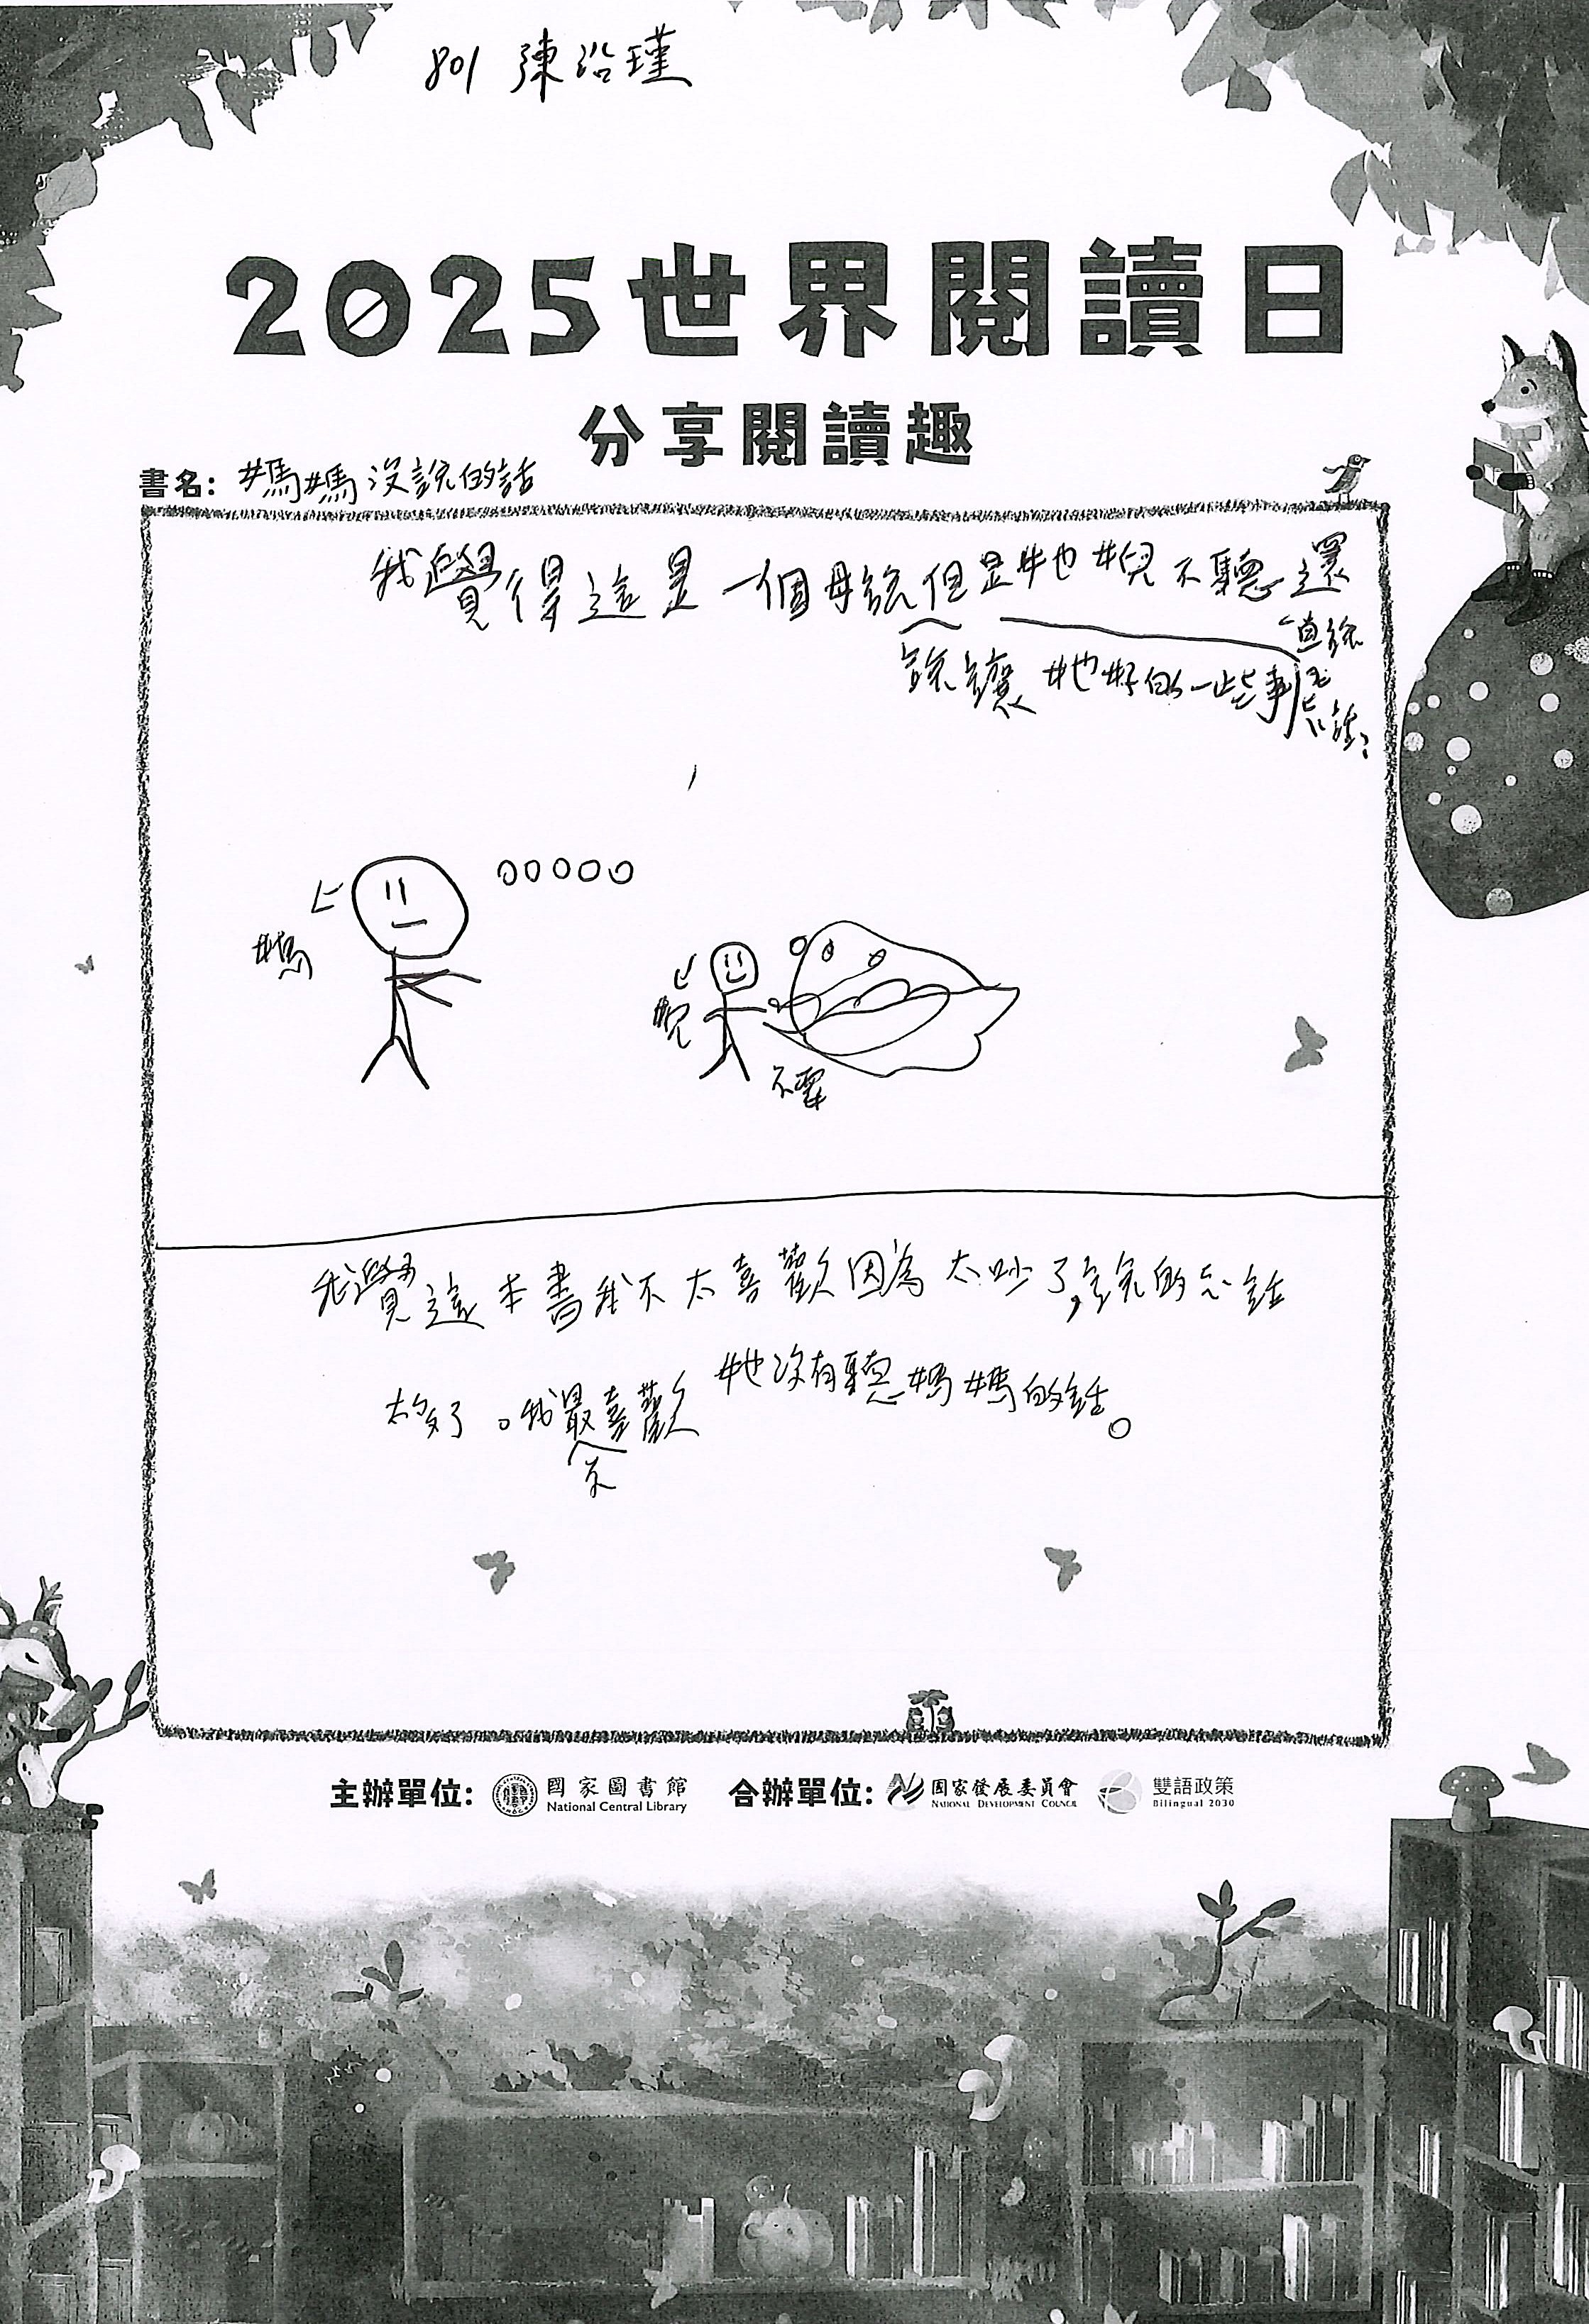 801 陳沿瑾
2025世界閱讀日
分享閱讀趣
書名: 媽媽沒說的話
我覺得這是一個母說但是她兒不聽還
一直說
說讓她好的一些事
媽
ooooo
兒
不要
我覺這本書我不太喜歡因為太吵了,說的話
太多了。我最喜歡她沒有聽媽媽的話。
不
主辦單位: 國家圖書館 National Central Library 合辦單位: 國家發展委員會 NATIONAL DEVELOPMENT COUNCIL 雙語政策 Bilingual 2030